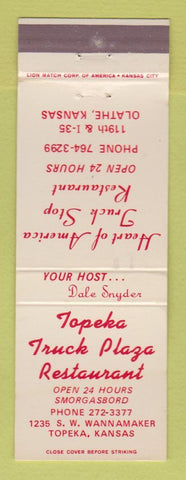 LION MATCH CORP. OF AMERICA • KANSAS CITY
OLATHE, KANSAS
119th & I-35
PHONE 764-3299
OPEN 24 HOURS
Restaurant
Truck Stop
Heart of America
YOUR HOST...
Dale Snyder
Topeka
Truck Plaza
Restaurant
OPEN 24 HOURS
SMORGASBORD
PHONE 272-3377
1235 S. W. WANNAMAKER
TOPEKA, KANSAS
CLOSE COVER BEFORE STRIKING